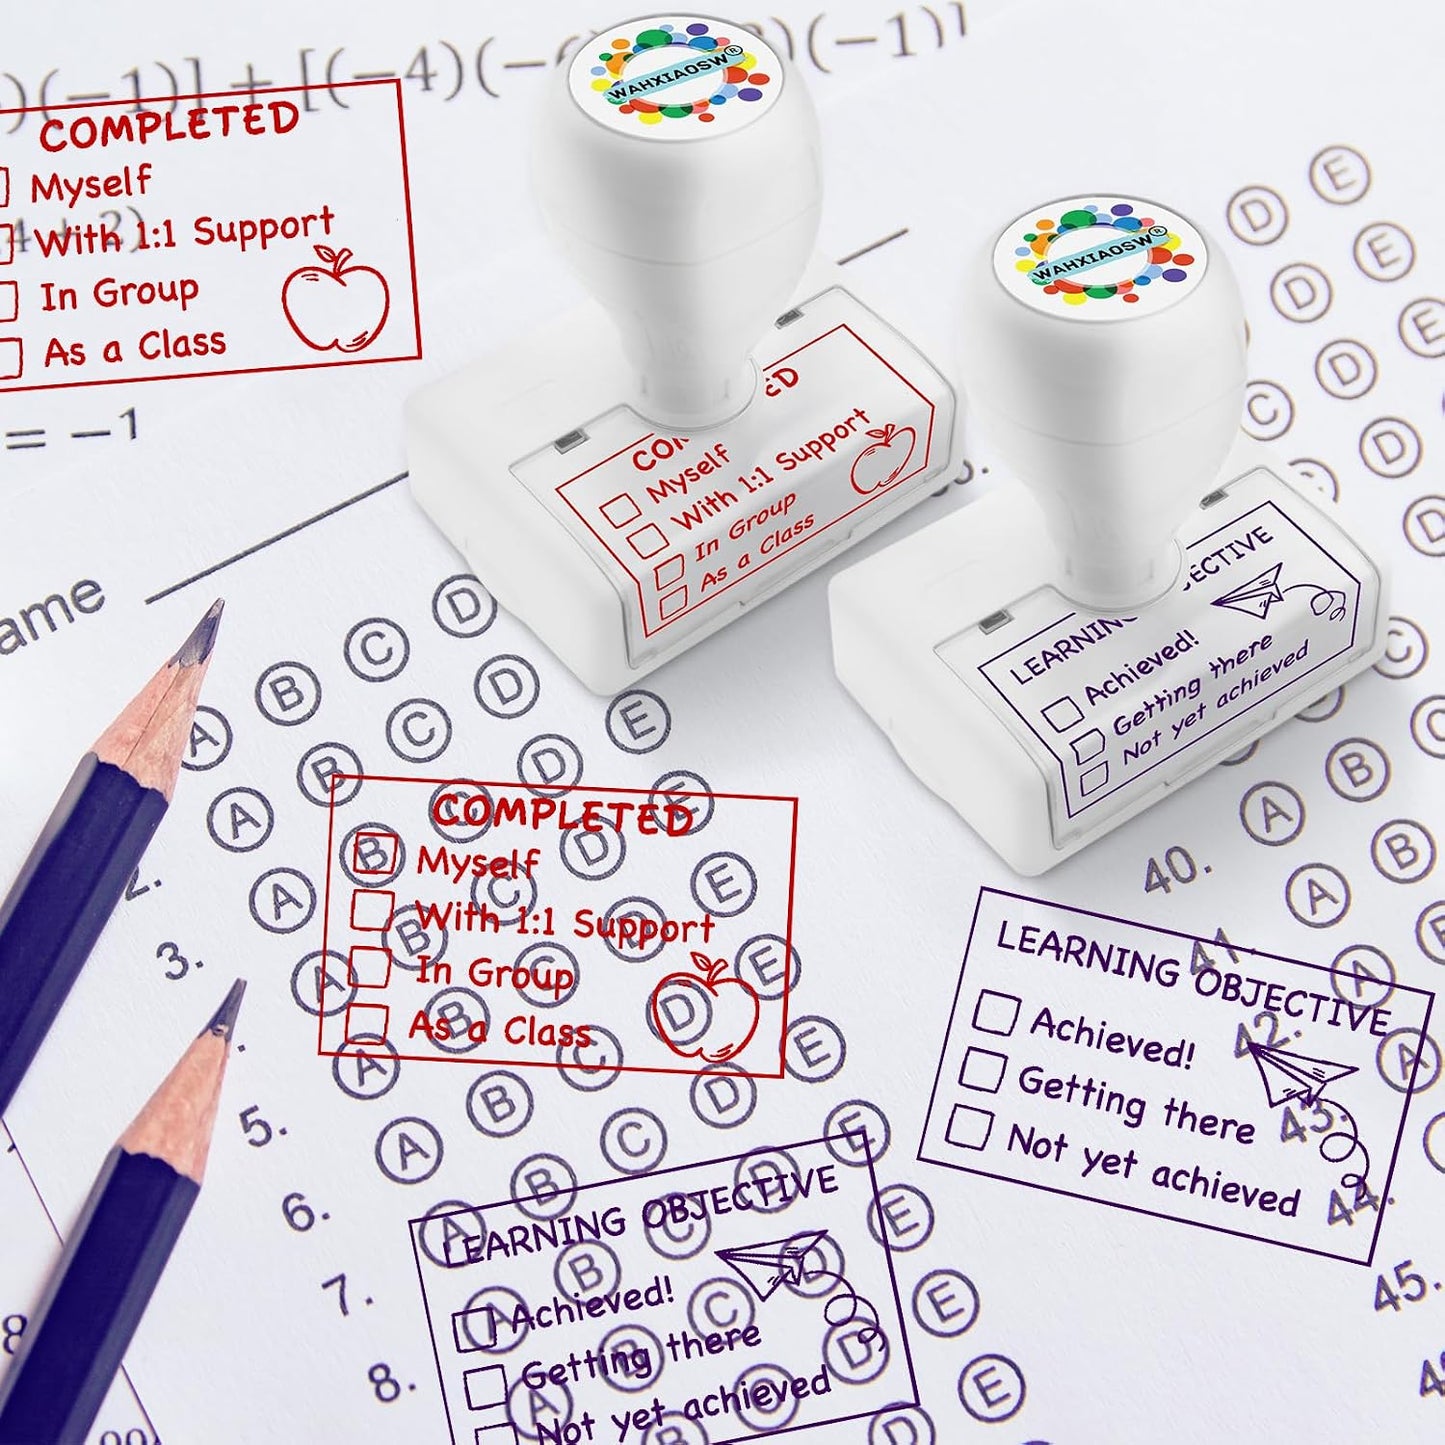 )(−1)] + [(−4)(−6
)(−1)]
COMPLETED
Myself
With 1:1 Support
In Group
As a Class
4 + 2)
= −1
WAHXIAOSW®
COM
ED
Myself
With 1:1 Support
In Group
As a Class
WAHXIAOSW®
LEARNIN
ECTIVE
Achieved!
Getting there
Not yet achieved
ame
D E
D E
D E
C D
D
A B C D
A B C D E
A B C D E
2.
3.
COMPLETED
Myself
With 1:1 Support
In Group
As a Class
5.
A B C D E
6.
7.
8.
LEARNING OBJECTIVE
Achieved!
Getting there
Not yet achieved
40.
A B C
41.
A B
42.
A
43.
44.
45.
LEARNING OBJECTIVE
Achieved!
Getting there
Not yet achieved